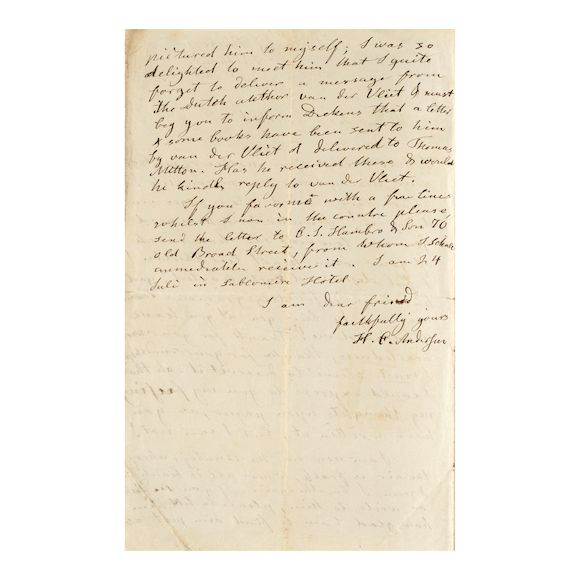 pictured him to myself; I was so
delighted to meet him that I quite
forget to deliver a message from
the Dutch author van der Vliet & must
beg you to inform Dickens that a letter
& some books have been sent to him
by van der Vliet & delivered to Thomas
Mitton. Has he received these & would
he kindly reply to van der Vliet.
If you favour me with a few lines
whilst I am in the countre please
send the letter to C. J. Hambro & Son 70
old Broad Street, from whom I schall
immediately receive it. I am 24
Juli in Sablonière Hotel.
I am dear friend
faithfully yours
H. C. Andersen